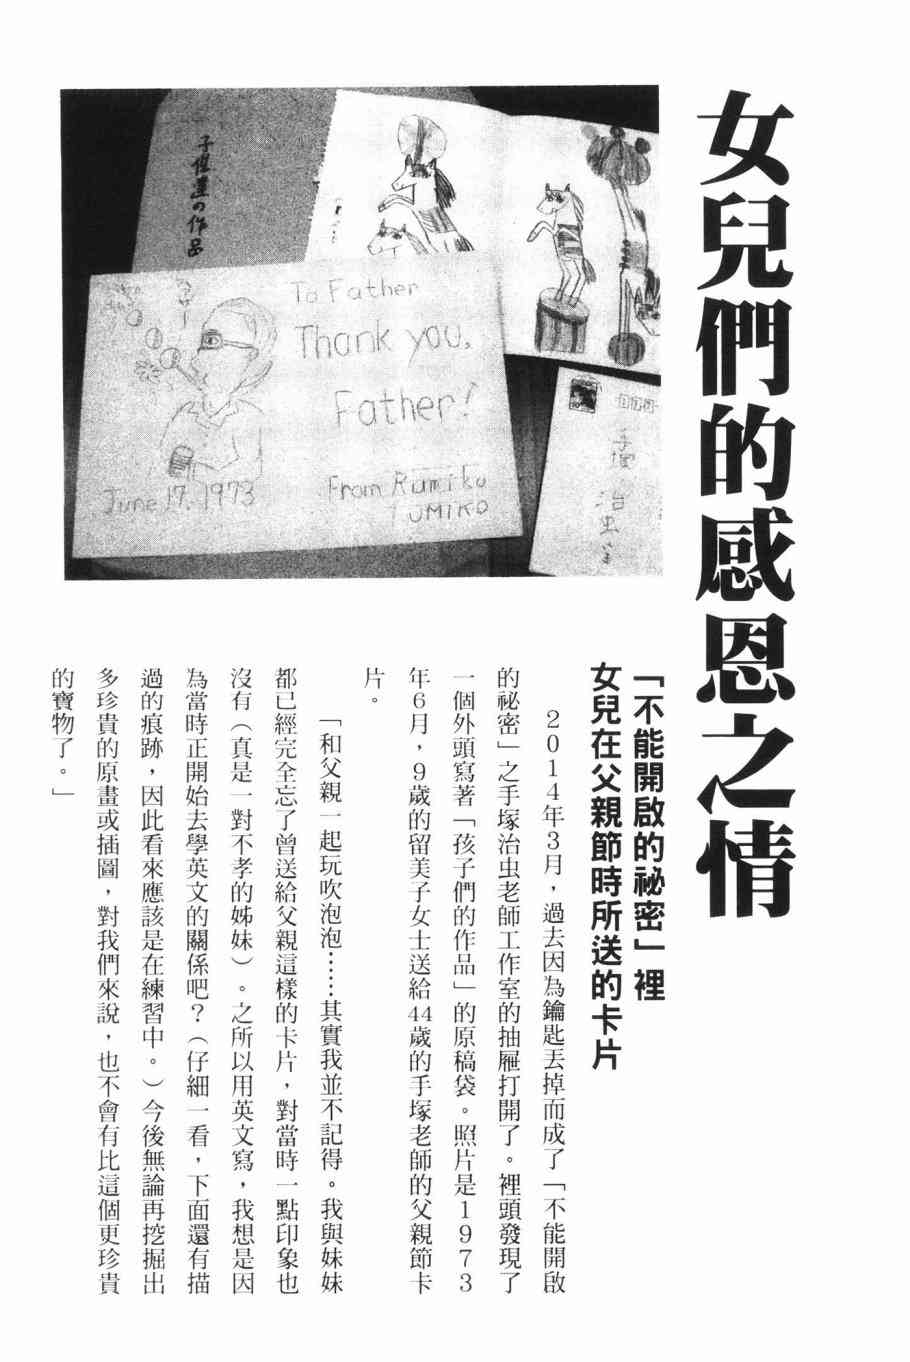 女兒們的感恩之情
子供達の作品
To Father
Thank you,
Father!
From Rumiko
June 17. 1973
手塚
治虫
「不能開啟的祕密」裡
女兒在父親節時所送的卡片
2014年3月，過去因為鑰匙丟掉而成了「不能開啟
的祕密」之手塚治虫老師工作室的抽屜打開了。裡頭發現了
一個外頭寫著「孩子們的作品」的原稿袋。照片是1973
年6月，9歲的留美子女士送給44歲的手塚老師的父親節卡
片。
「和父親一起玩吹泡泡……其實我並不記得。我與妹妹
都已經完全忘了曾送給父親這樣的卡片，對當時一點印象也
沒有（真是一對不孝的姊妹）。之所以用英文寫，我想是因
為當時正開始去學英文的關係吧？（仔細一看，下面還有描
過的痕跡，因此看來應該是在練習中。）今後無論再挖掘出
多珍貴的原畫或插圖，對我們來說，也不會有比這個更珍貴
的寶物了。」